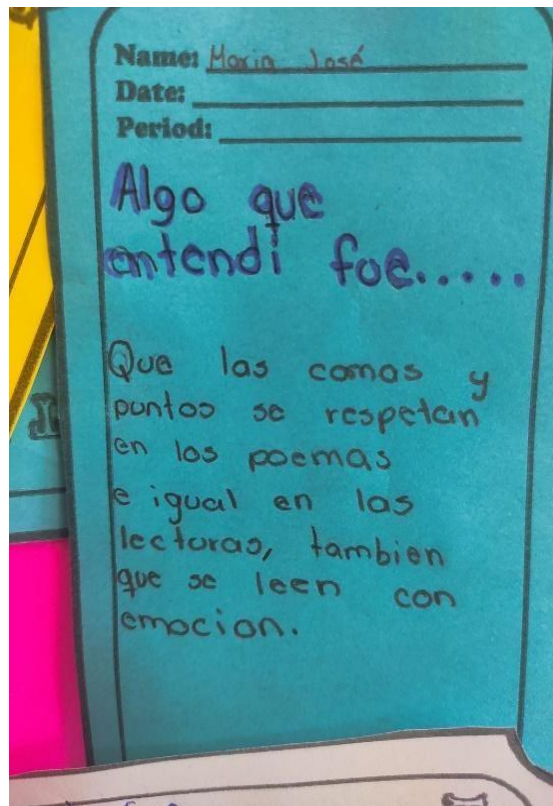 Name: Maria José
Date:
Period:
Algo que
entendi fue.....
Que las comas y
puntos se respetan
en los poemas
e igual en las
lecturas, tambien
que se leen con
emocion.